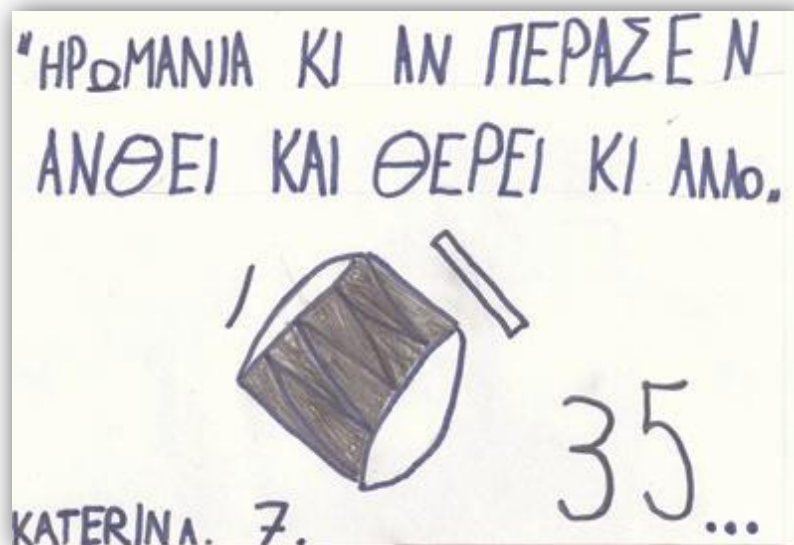 "ΗΡΩΜΑΝΙΑ ΚΙ ΑΝ ΠΕΡΑΣΕ Ν
ΑΝΘΕΙ ΚΑΙ ΘΕΡΕΙ ΚΙ ΑΛΛΟ."
35...
KATERINA. 7.